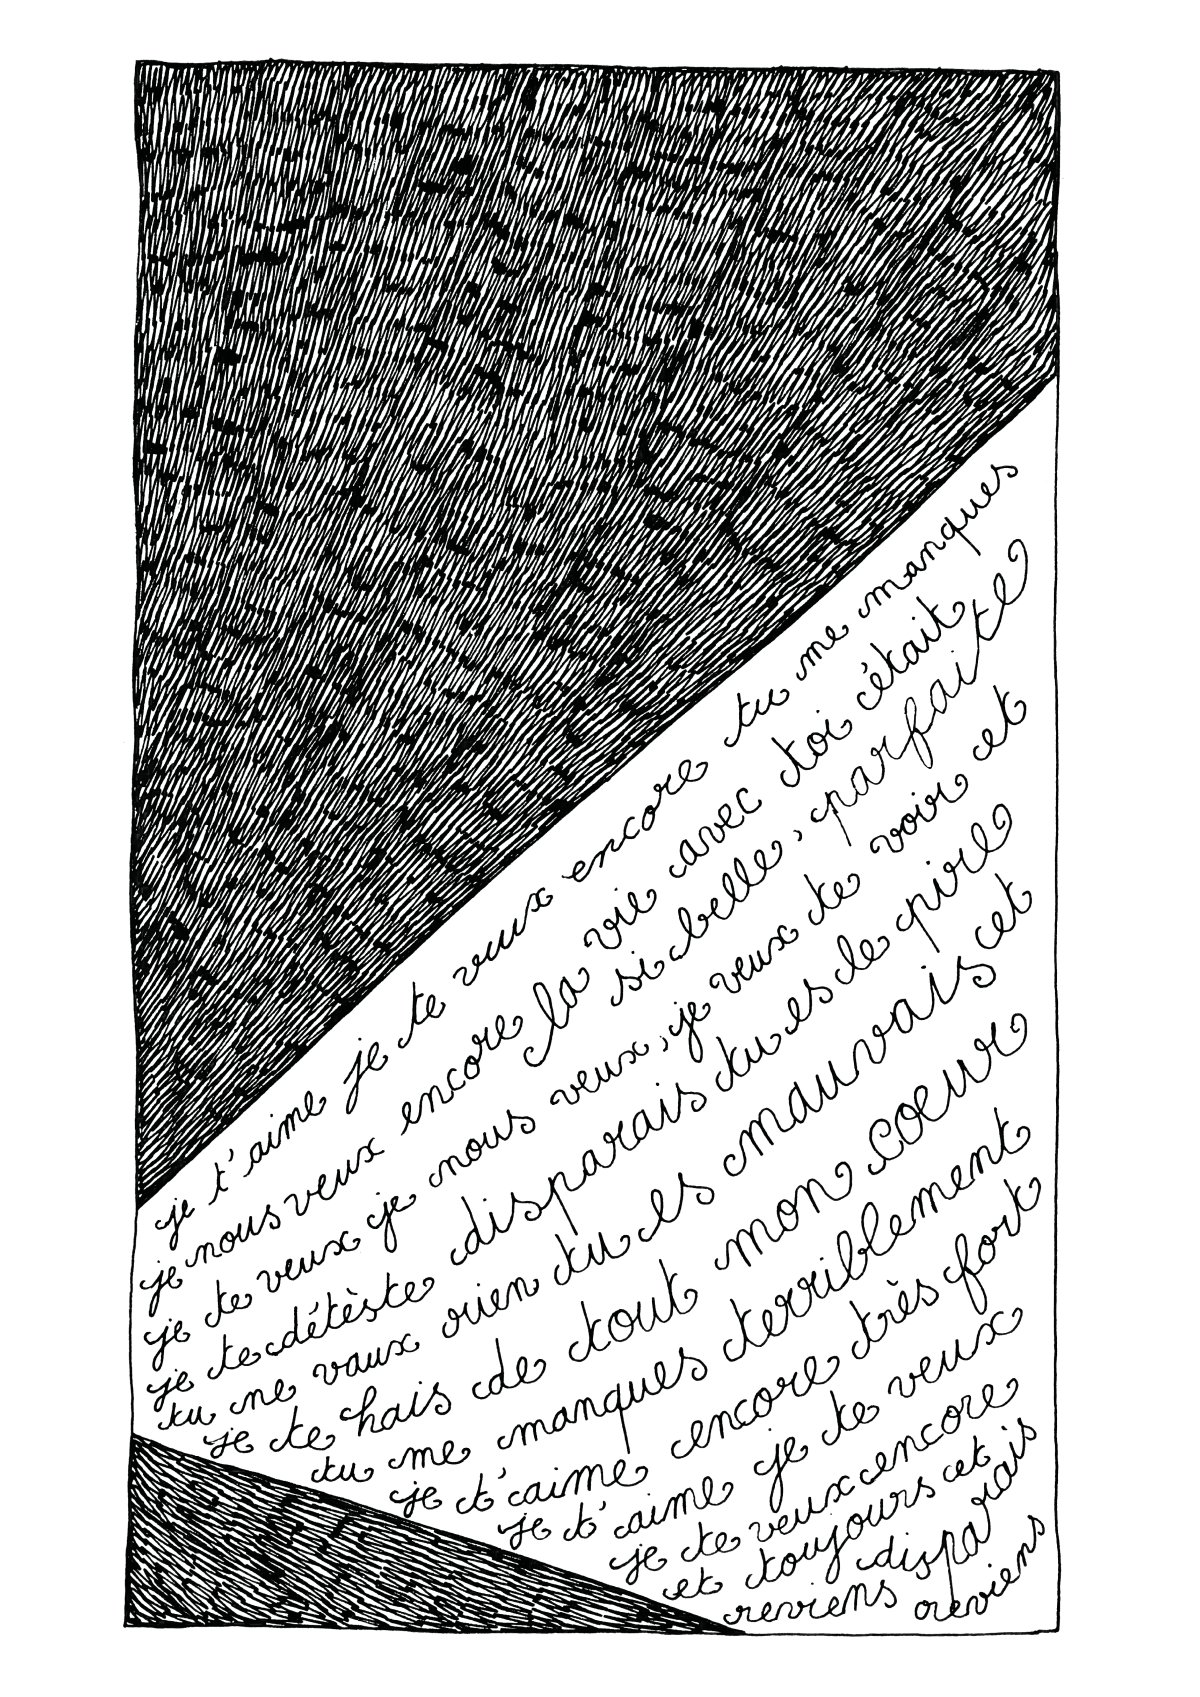 je t'aime je te veux encore tu me manques
je nous veux encore la vie avec toi c'était
si belle, parfaite
je te veux je nous veux, je veux te voir et
je te détèste disparais tu es le pire
tu ne vaux rien tu es mauvais et
je te hais de tout mon coeur
tu me manques terriblement
je t'aime encore très fort
je t'aime je te veux
je te veux encore
et toujours et
disparais
reviens reviens